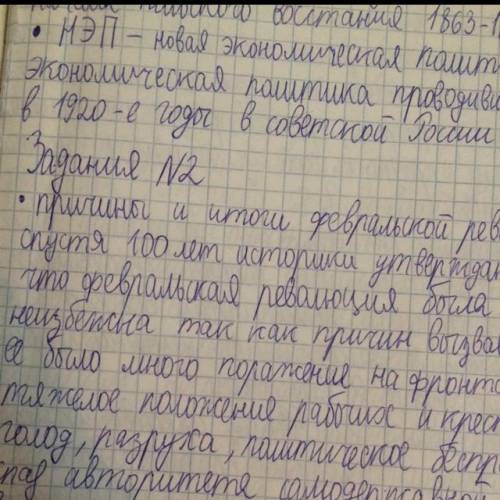 польского восстания 1863-
• НЭП – новая экономическая полит
экономическая политика проводив
в 1920-е годы в советской России
Задания №2
• причины и итоги февральской рев
спустя 100 лет историки утверждаю
что февральская революция была
неизбежна так как причин вызва
её было много поражение на фронт
тяжелое положение рабочих и крест
голод, разруха, политическое беспр
спад авторитета самодержавной